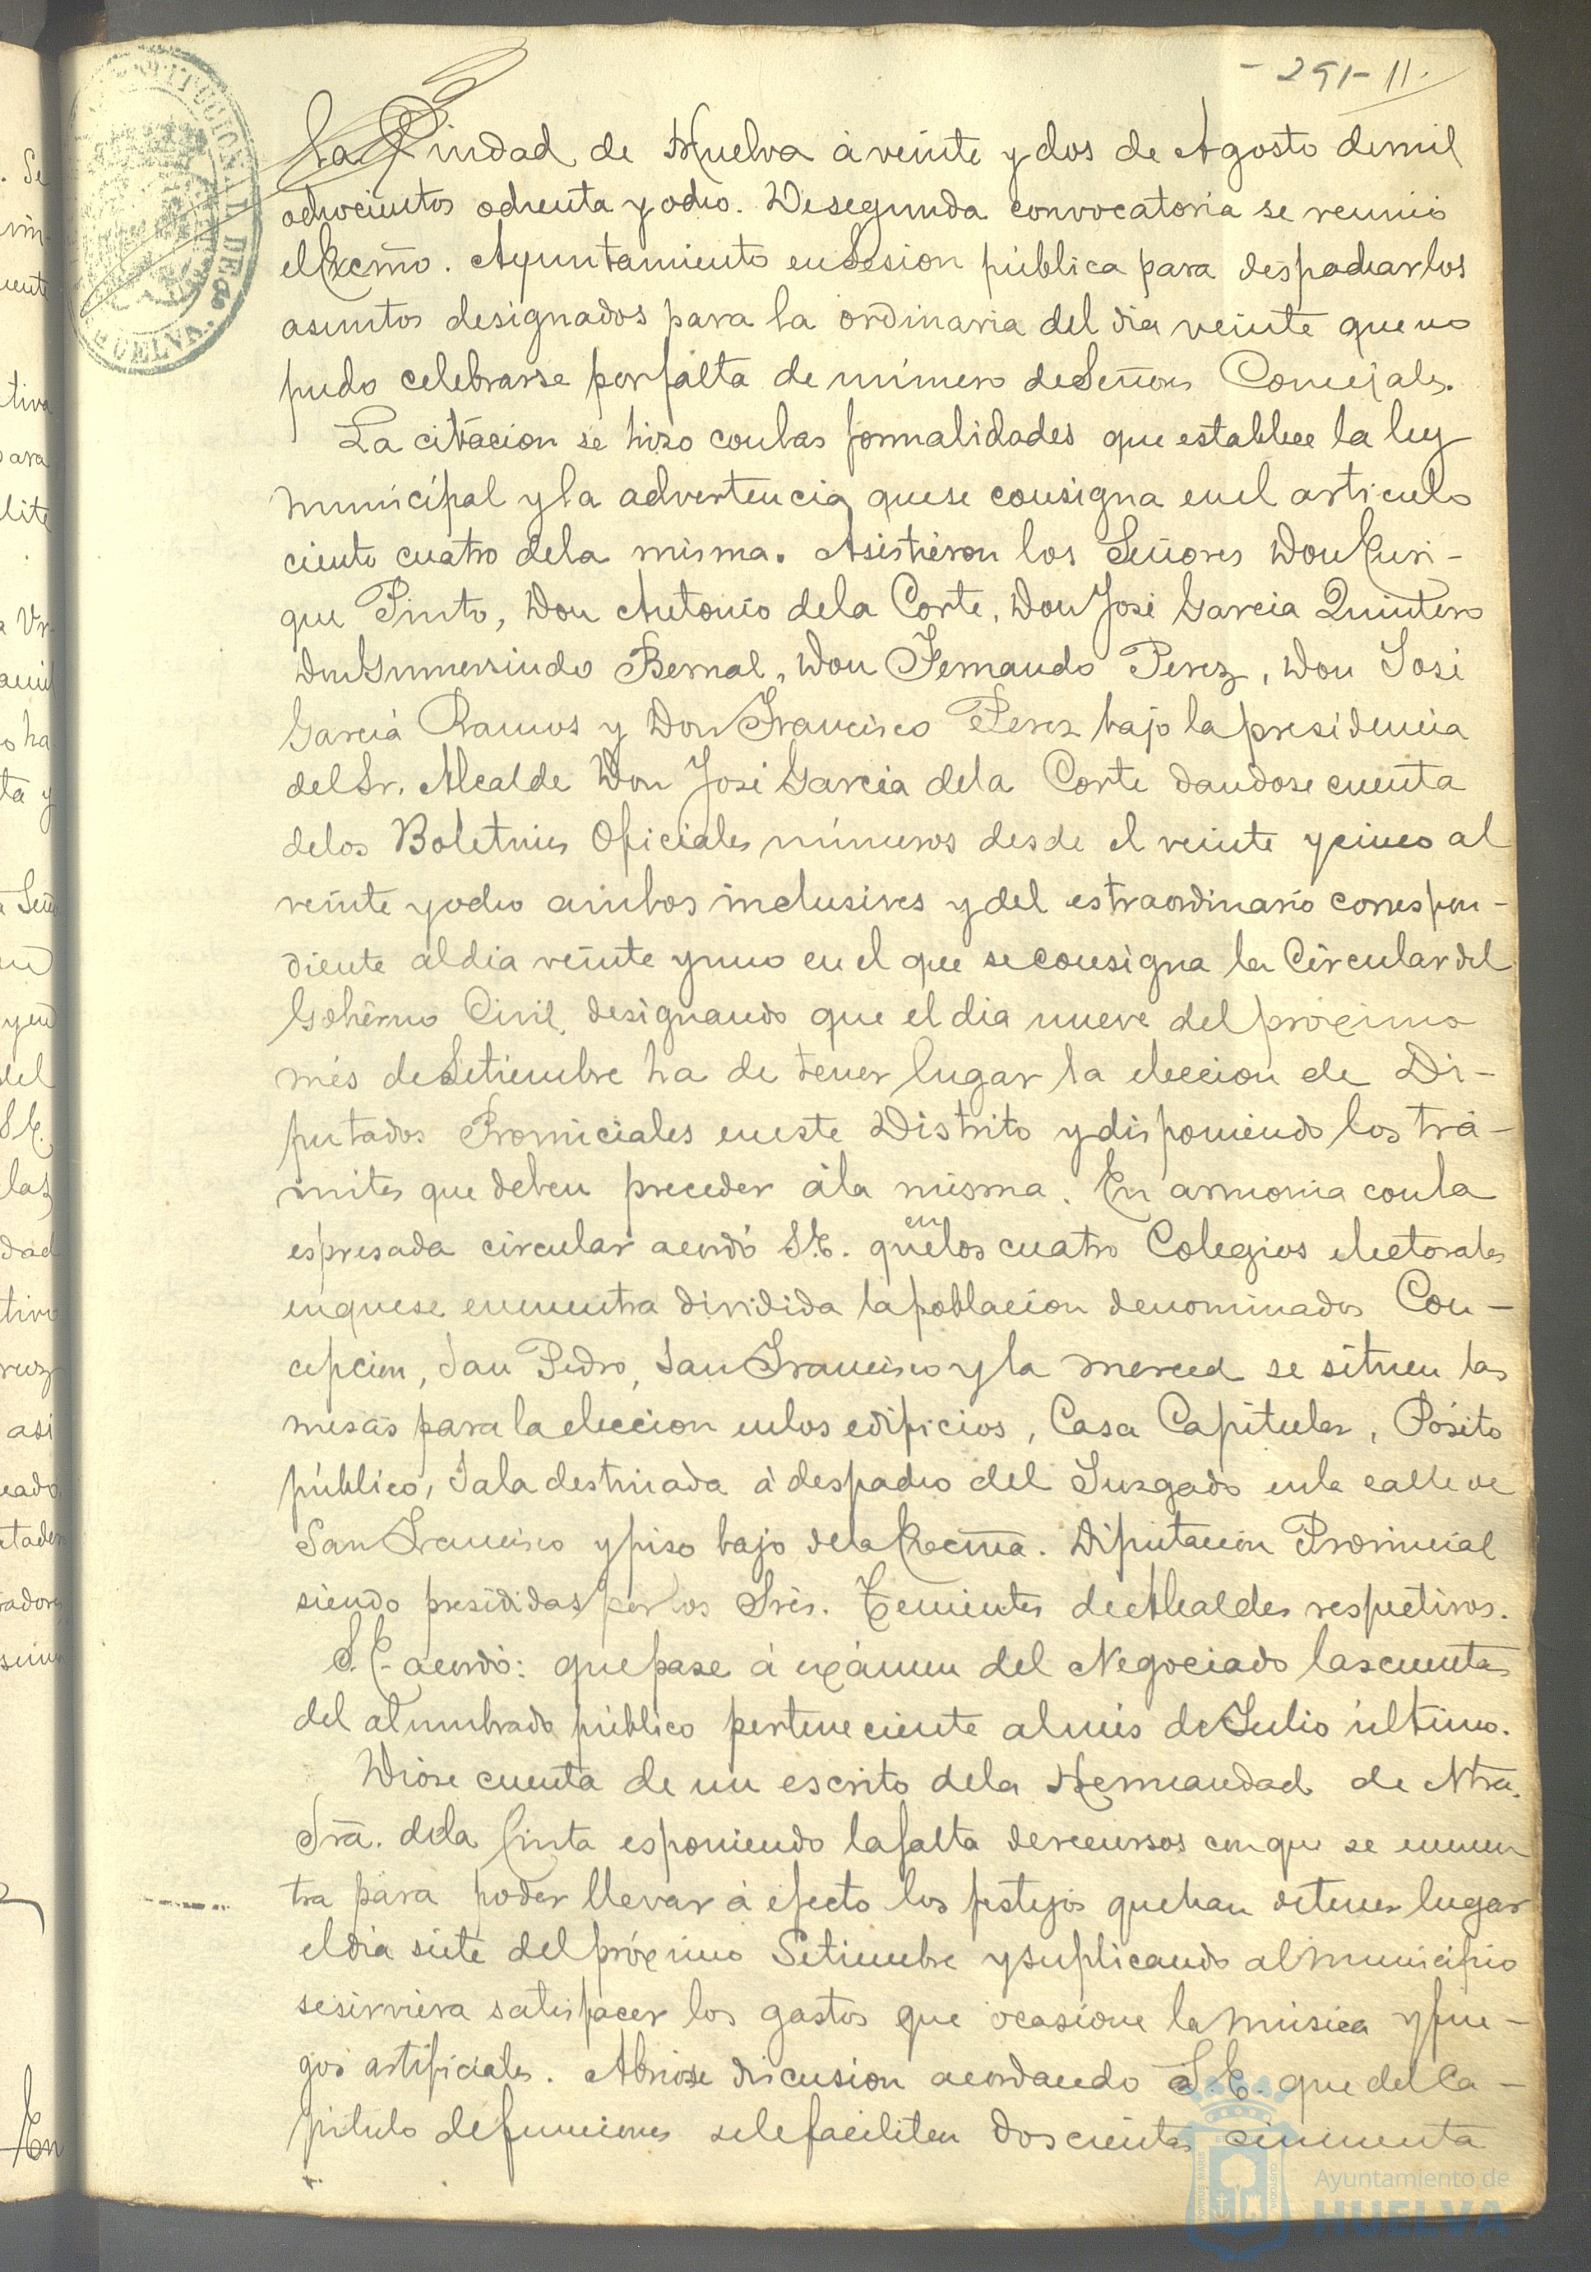 - 291 - 11.
la Ciudad de Huelva á veinte y dos de Agosto de mil
ochocientos ochenta y ocho. De segunda convocatoria se reunió
el Excmo. Ayuntamiento en Sesion pública para despachar los
asuntos designados para la ordinaria del dia veinte que no
pudo celebrarse por falta de número de Señores Concejales.
La citacion se hizo con las formalidades que establece la ley
municipal y la advertencia que se consigna en el articulo
ciento cuatro de la misma. Asistieron los Señores Don Enri-
que Pinto, Don Antonio de la Corte, Don José Garcia Quintero
Don Gumersindo Bernal, Don Fernando Perez, Don José
Garcia Ramos y Don Francisco Perez bajo la presidencia
del Sr. Alcalde Don José Garcia de la Corte dandose cuenta
de los Boletines Oficiales números desde el veinte y cinco al
veinte y ocho ambos inclusives y del estraordinario correspon-
diente al dia veinte y uno en el que se consigna la Circular del
Gobierno Civil designando que el dia nueve del próximo
més de Setiembre ha de tener lugar la eleccion de Di-
putados Provinciales en este Distrito y disponiendo los trá-
mites que deben preceder á la misma. En armonia con la
espresada circular acordó S.E. que en los cuatro Colegios electorales
en que se encuentra dividida la poblacion denominados Con-
cepcion, San Pedro, San Francisco y la Merced se sitúen las
mesas para la eleccion en los edificios, Casa Capitular, Pósito
público, Sala destinada á despacho del Juzgado en la calle de
San Francisco y piso bajo de la Excma. Diputacion Provincial
siendo presididas por los Sres. Tenientes de Alcaldes respectivos.
S.E. acordó: que pase á exámen del Negociado las cuentas
del alumbrado público perteneciente al més de Julio último.
Dióse cuenta de un escrito de la Hermandad de Ntra.
Sra. de la Cinta esponiendo la falta de recursos con que se encuen
tra para poder llevar á efecto los festejos que han de tener lugar
el dia siete del próximo Setiembre y suplicando al Municipio
se sirviera satisfacer los gastos que ocasione la música y fue-
gos artificiales. Abrióse discusion acordando S.E. que del Ca-
pitulo de funciones se le faciliten doscientas cincuenta
Ayuntamiento de
HUELVA